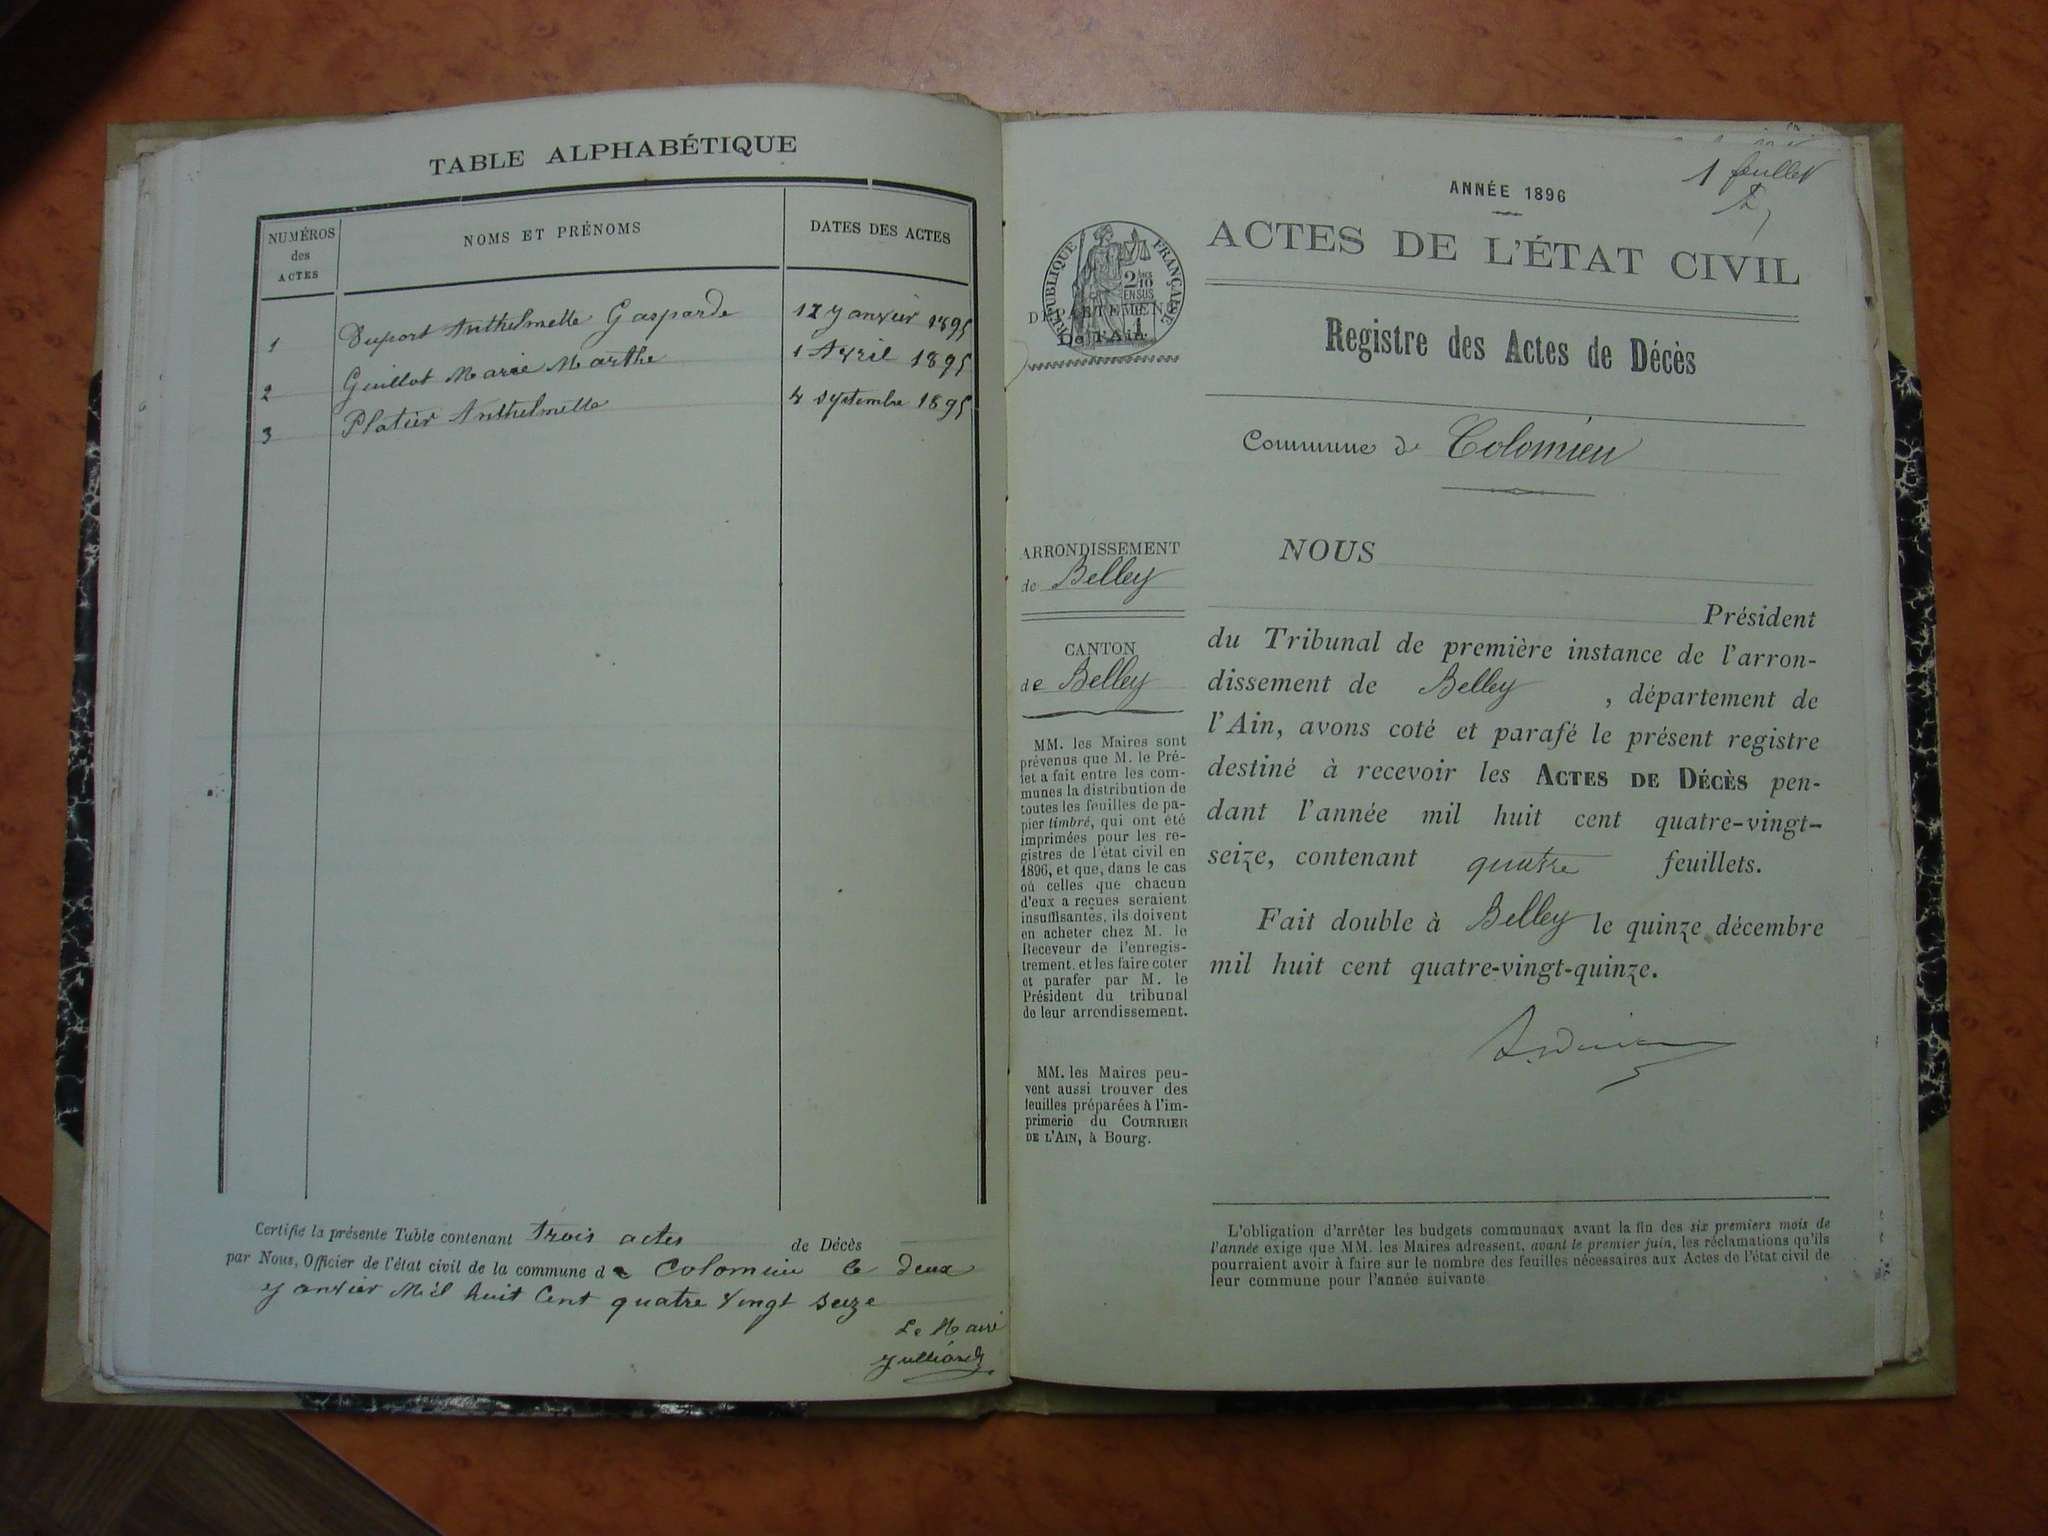 TABLE ALPHABÉTIQUE
NUMÉROS
des
ACTES
NOMS ET PRÉNOMS
DATES DES ACTES
1 Duport Anthelmette Gasparde 17 Janvier 1895
2 Guillot Marie Marthe 1 Avril 1895
3 Platier Anthelmette 4 Septembre 1895
Certifié la présente Table contenant trois actes de Décès
par Nous, Officier de l'état civil de la commune de Colomieu le deux
Janvier Mil huit Cent quatre Vingt seize
Le Maire
Julliard
1 feuillet
ANNÉE 1896
ACTES DE L'ÉTAT CIVIL
RÉPUBLIQUE FRANÇAISE
2/10
EN SUS
DÉPARTEMENT
De l'Ain
Registre des Actes de Décès
Commune de Colomieu
ARRONDISSEMENT
de Belley
CANTON
de Belley
MM. les Maires sont
prévenus que M. le Pré-
fet a fait entre les com-
munes la distribution de
toutes les feuilles de pa-
pier timbré, qui ont été
imprimées pour les re-
gistres de l'état civil en
1896, et que, dans le cas
où celles que chacun
d'eux a reçues seraient
insuffisantes, ils doivent
en acheter chez M. le
Receveur de l'enregis-
trement, et les faire coter
et parafer par M. le
Président du tribunal
de leur arrondissement.
MM. les Maires peu-
vent aussi trouver des
feuilles préparées à l'im-
primerie du COURRIER
DE L'AIN, à Bourg.
NOUS
Président
du Tribunal de première instance de l'arron-
dissement de Belley, département de
l'Ain, avons coté et parafé le présent registre
destiné à recevoir les ACTES DE DÉCÈS pen-
dant l'année mil huit cent quatre-vingt-
seize, contenant quatre feuillets.
Fait double à Belley le quinze décembre
mil huit cent quatre-vingt-quinze.
L'obligation d'arrêter les budgets communaux avant la fin des six premiers mois de
l'année exige que MM. les Maires adressent, avant le premier juin, les réclamations qu'ils
pourraient avoir à faire sur le nombre des feuilles nécessaires aux Actes de l'état civil de
leur commune pour l'année suivante